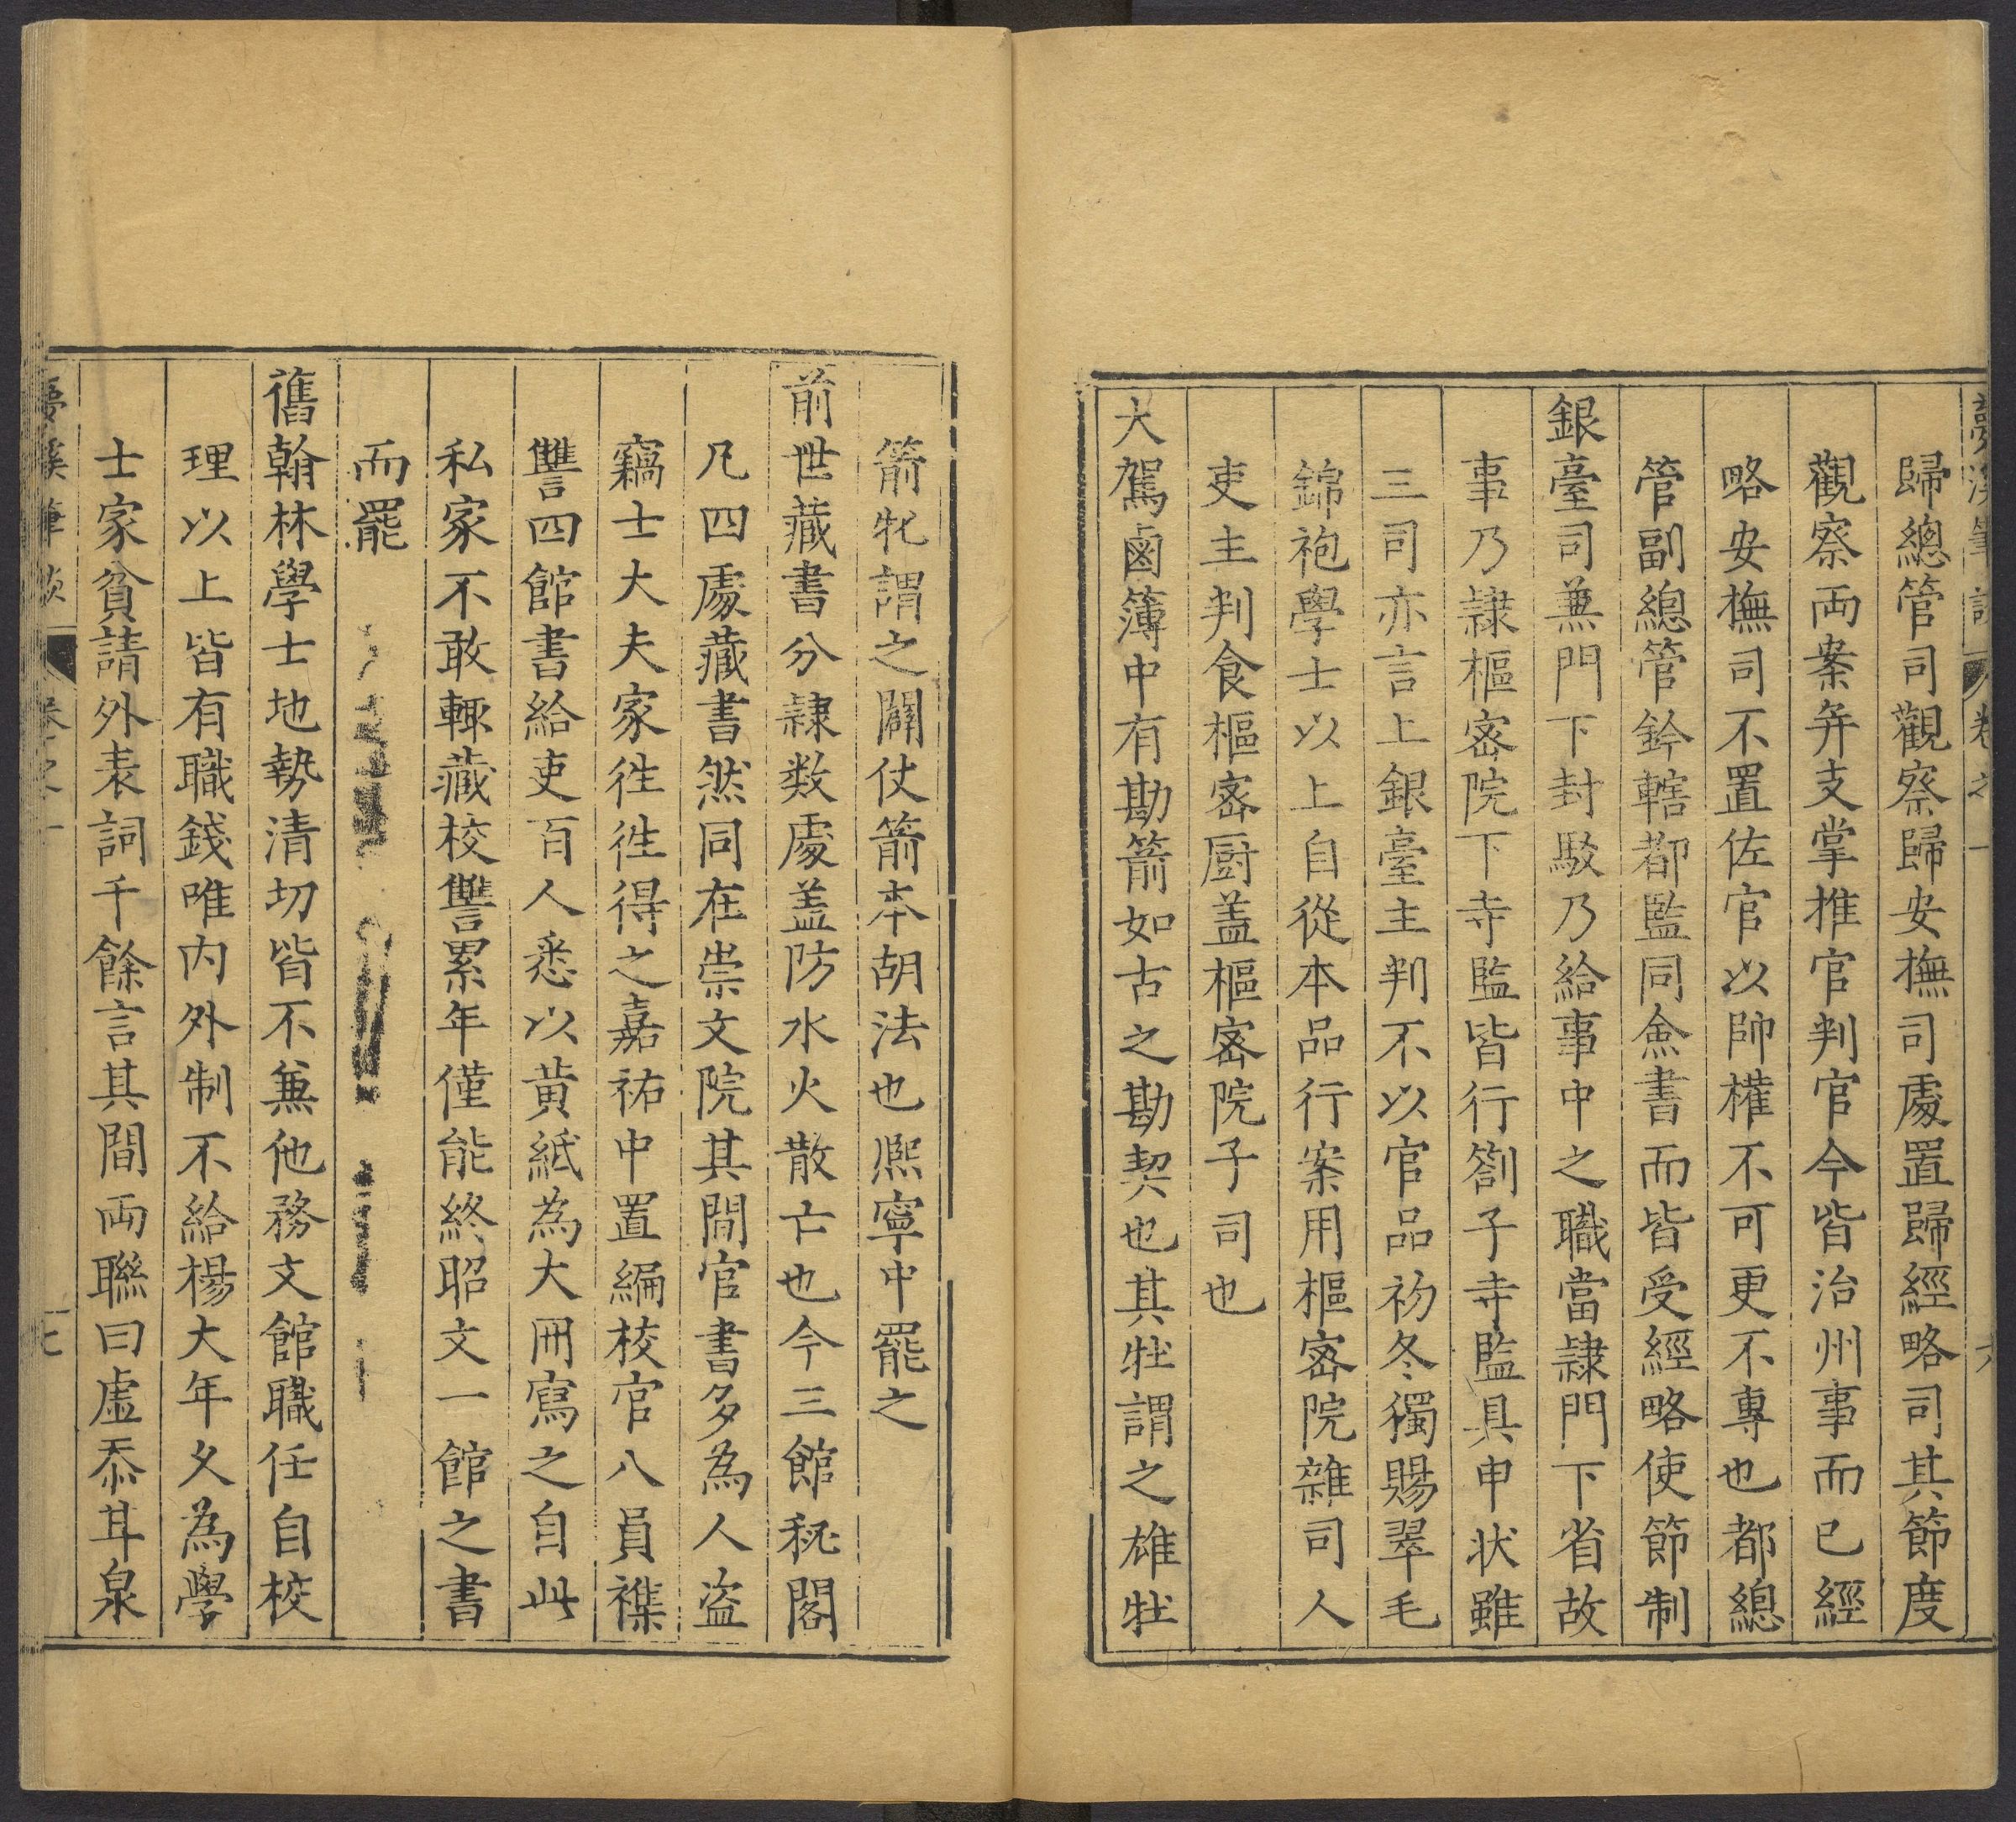 夢溪筆談 卷之一 六
歸總管司觀察歸安撫司處置歸經略司其節度
觀察両案并支掌推官判官今皆治州事而已經
略安撫司不置佐官以帥權不可更不專也都總
管副總管鈐轄都監同僉書而皆受經略使節制
銀臺司兼門下封駁乃給事中之職當隷門下省故
事乃隷樞宻院下寺監皆行劄子寺監具申状雖
三司亦言上銀臺主判不以官品初冬獨賜翠毛
錦袍學士以上自從本品行案用樞宻院雜司人
吏主判食樞宻厨盖樞宻院子司也
大駕鹵簿中有勘箭如古之勘契也其牡謂之雄牡
箭牝謂之闢仗箭本胡法也熈寧中罷之
前世藏書分隷数處盖防水火散亡也今三館秘閣
凡四處藏書然同在崇文院其間官書多為人盗
竊士大夫家徃徃得之嘉祐中置編校官八員襍
讐四館書給吏百人悉以黄紙為大冊寫之自此
私家不敢輙藏校讐累年僅能終昭文一館之書
而罷
舊翰林學士地勢清切皆不兼他務文館職任自校
理以上皆有職錢唯内外制不給楊大年久為學
士家貧請外表詞千餘言其間両聯曰虛忝甘泉
夢溪筆談 卷之一 七